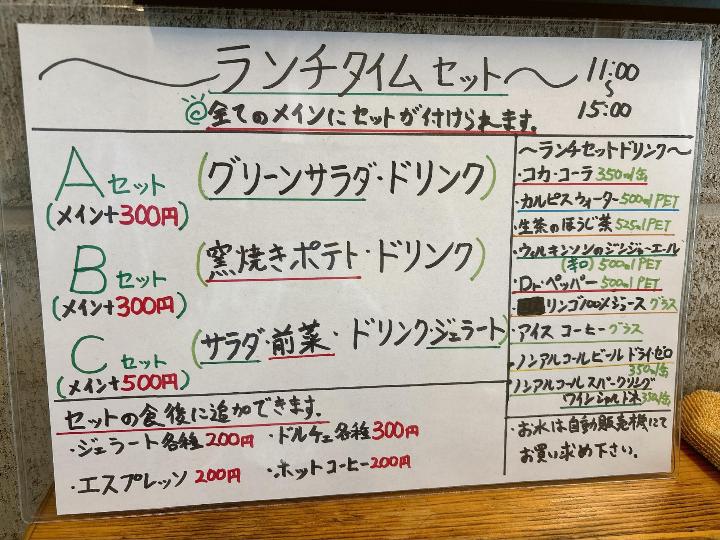 ～ランチタイムセット～ 11:00～15:00
◎全てのメインにセットが付けられます。
Aセット (グリーンサラダ・ドリンク)
(メイン+300円)
Bセット (窯焼きポテト・ドリンク)
(メイン+300円)
Cセット (サラダ・前菜・ドリンク・ジェラート)
(メイン+500円)
セットの食後に追加できます。
・ジェラート各種200円 ・ドルチェ各種300円
・エスプレッソ 200円 ・ホットコーヒー200円
～ランチセットドリンク～
・コカ・コーラ 350ml缶
・カルピスウォーター500ml PET
・生茶のほうじ茶 525ml PET
・ウィルキンソンのジンジャーエール
(辛口) 500ml PET
・Dr.ペッパー 500ml PET
・リンゴ100%ジュース グラス
・アイスコーヒー グラス
・ノンアルコールビールドライゼロ
350ml缶
・ノンアルコールスパークリング
ワインシャルドネ 350ml缶
・お水は自動販売機にて
お買い求め下さい。